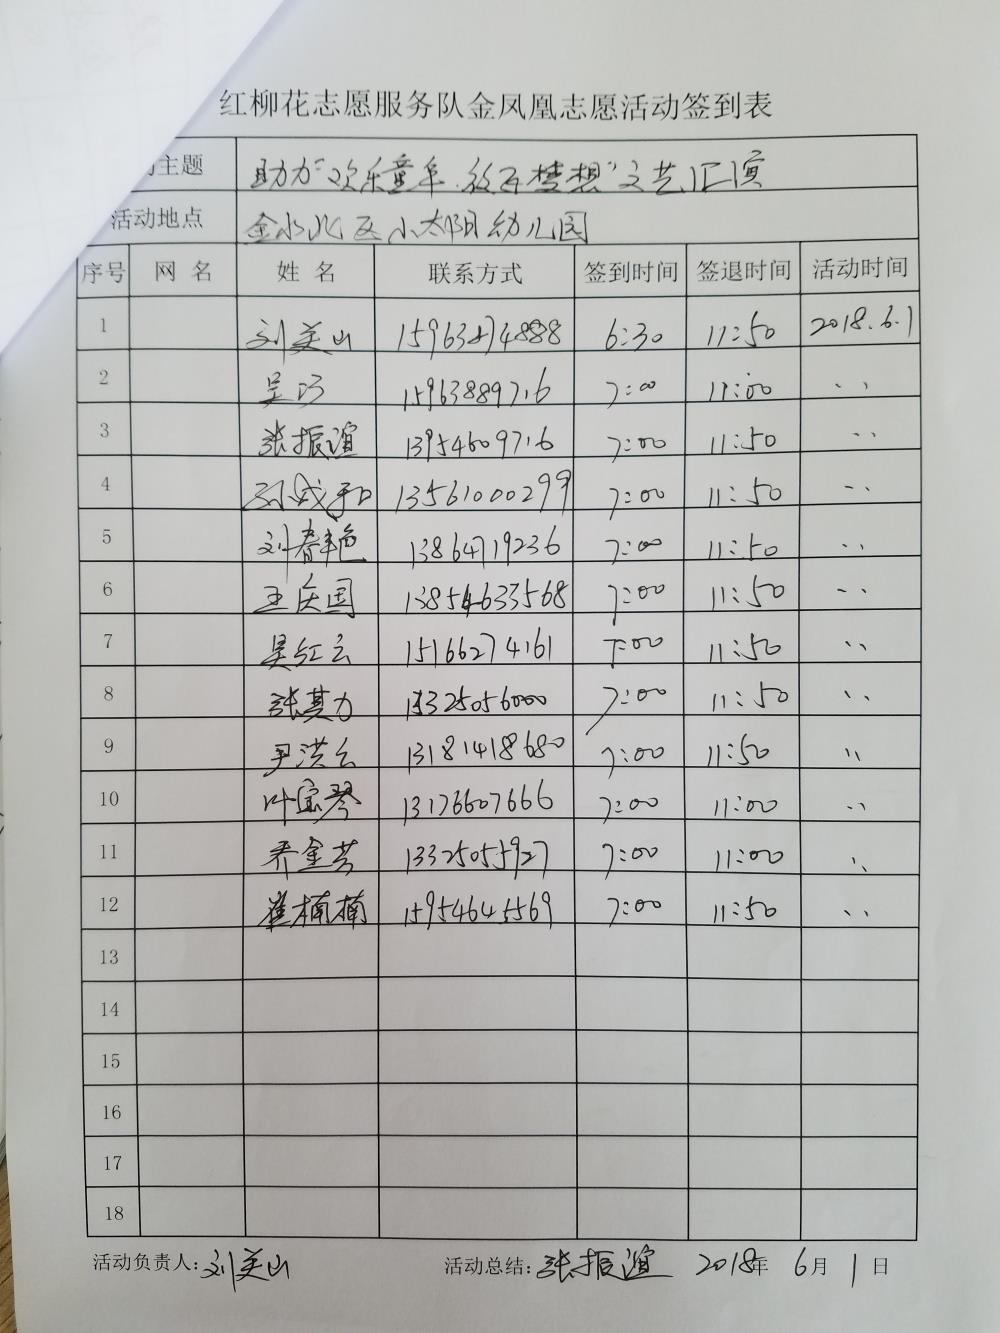 红柳花志愿服务队金凤凰志愿活动签到表
主题 助力"欢乐童年.放飞梦想"文艺汇演
活动地点 金水北区小太阳幼儿园
序号 网 名 姓 名 联系方式 签到时间 签退时间 活动时间
1 刘美山 15963874888 6:30 11:50 2018.6.1
2 吴巧 15963889716 7:00 11:00 ..
3 张振谊 13954609716 7:00 11:50 ..
4 孙成和 13561000299 7:00 11:50 ..
5 刘春艳 13864719236 7:00 11:50 ..
6 王庆国 13854633568 7:00 11:50 ..
7 吴红云 15166274161 7:00 11:50 ..
8 张其力 13325056000 7:00 11:50 ..
9 尹洪云 13181418680 7:00 11:50 ..
10 叶宝琴 13176607666 7:00 11:00 ..
11 乔金芳 13325055927 7:00 11:00 ..
12 崔楠楠 15954645569 7:00 11:50 ..
13
14
15
16
17
18
活动负责人:刘美山 活动总结:张振谊 2018年 6月 1日